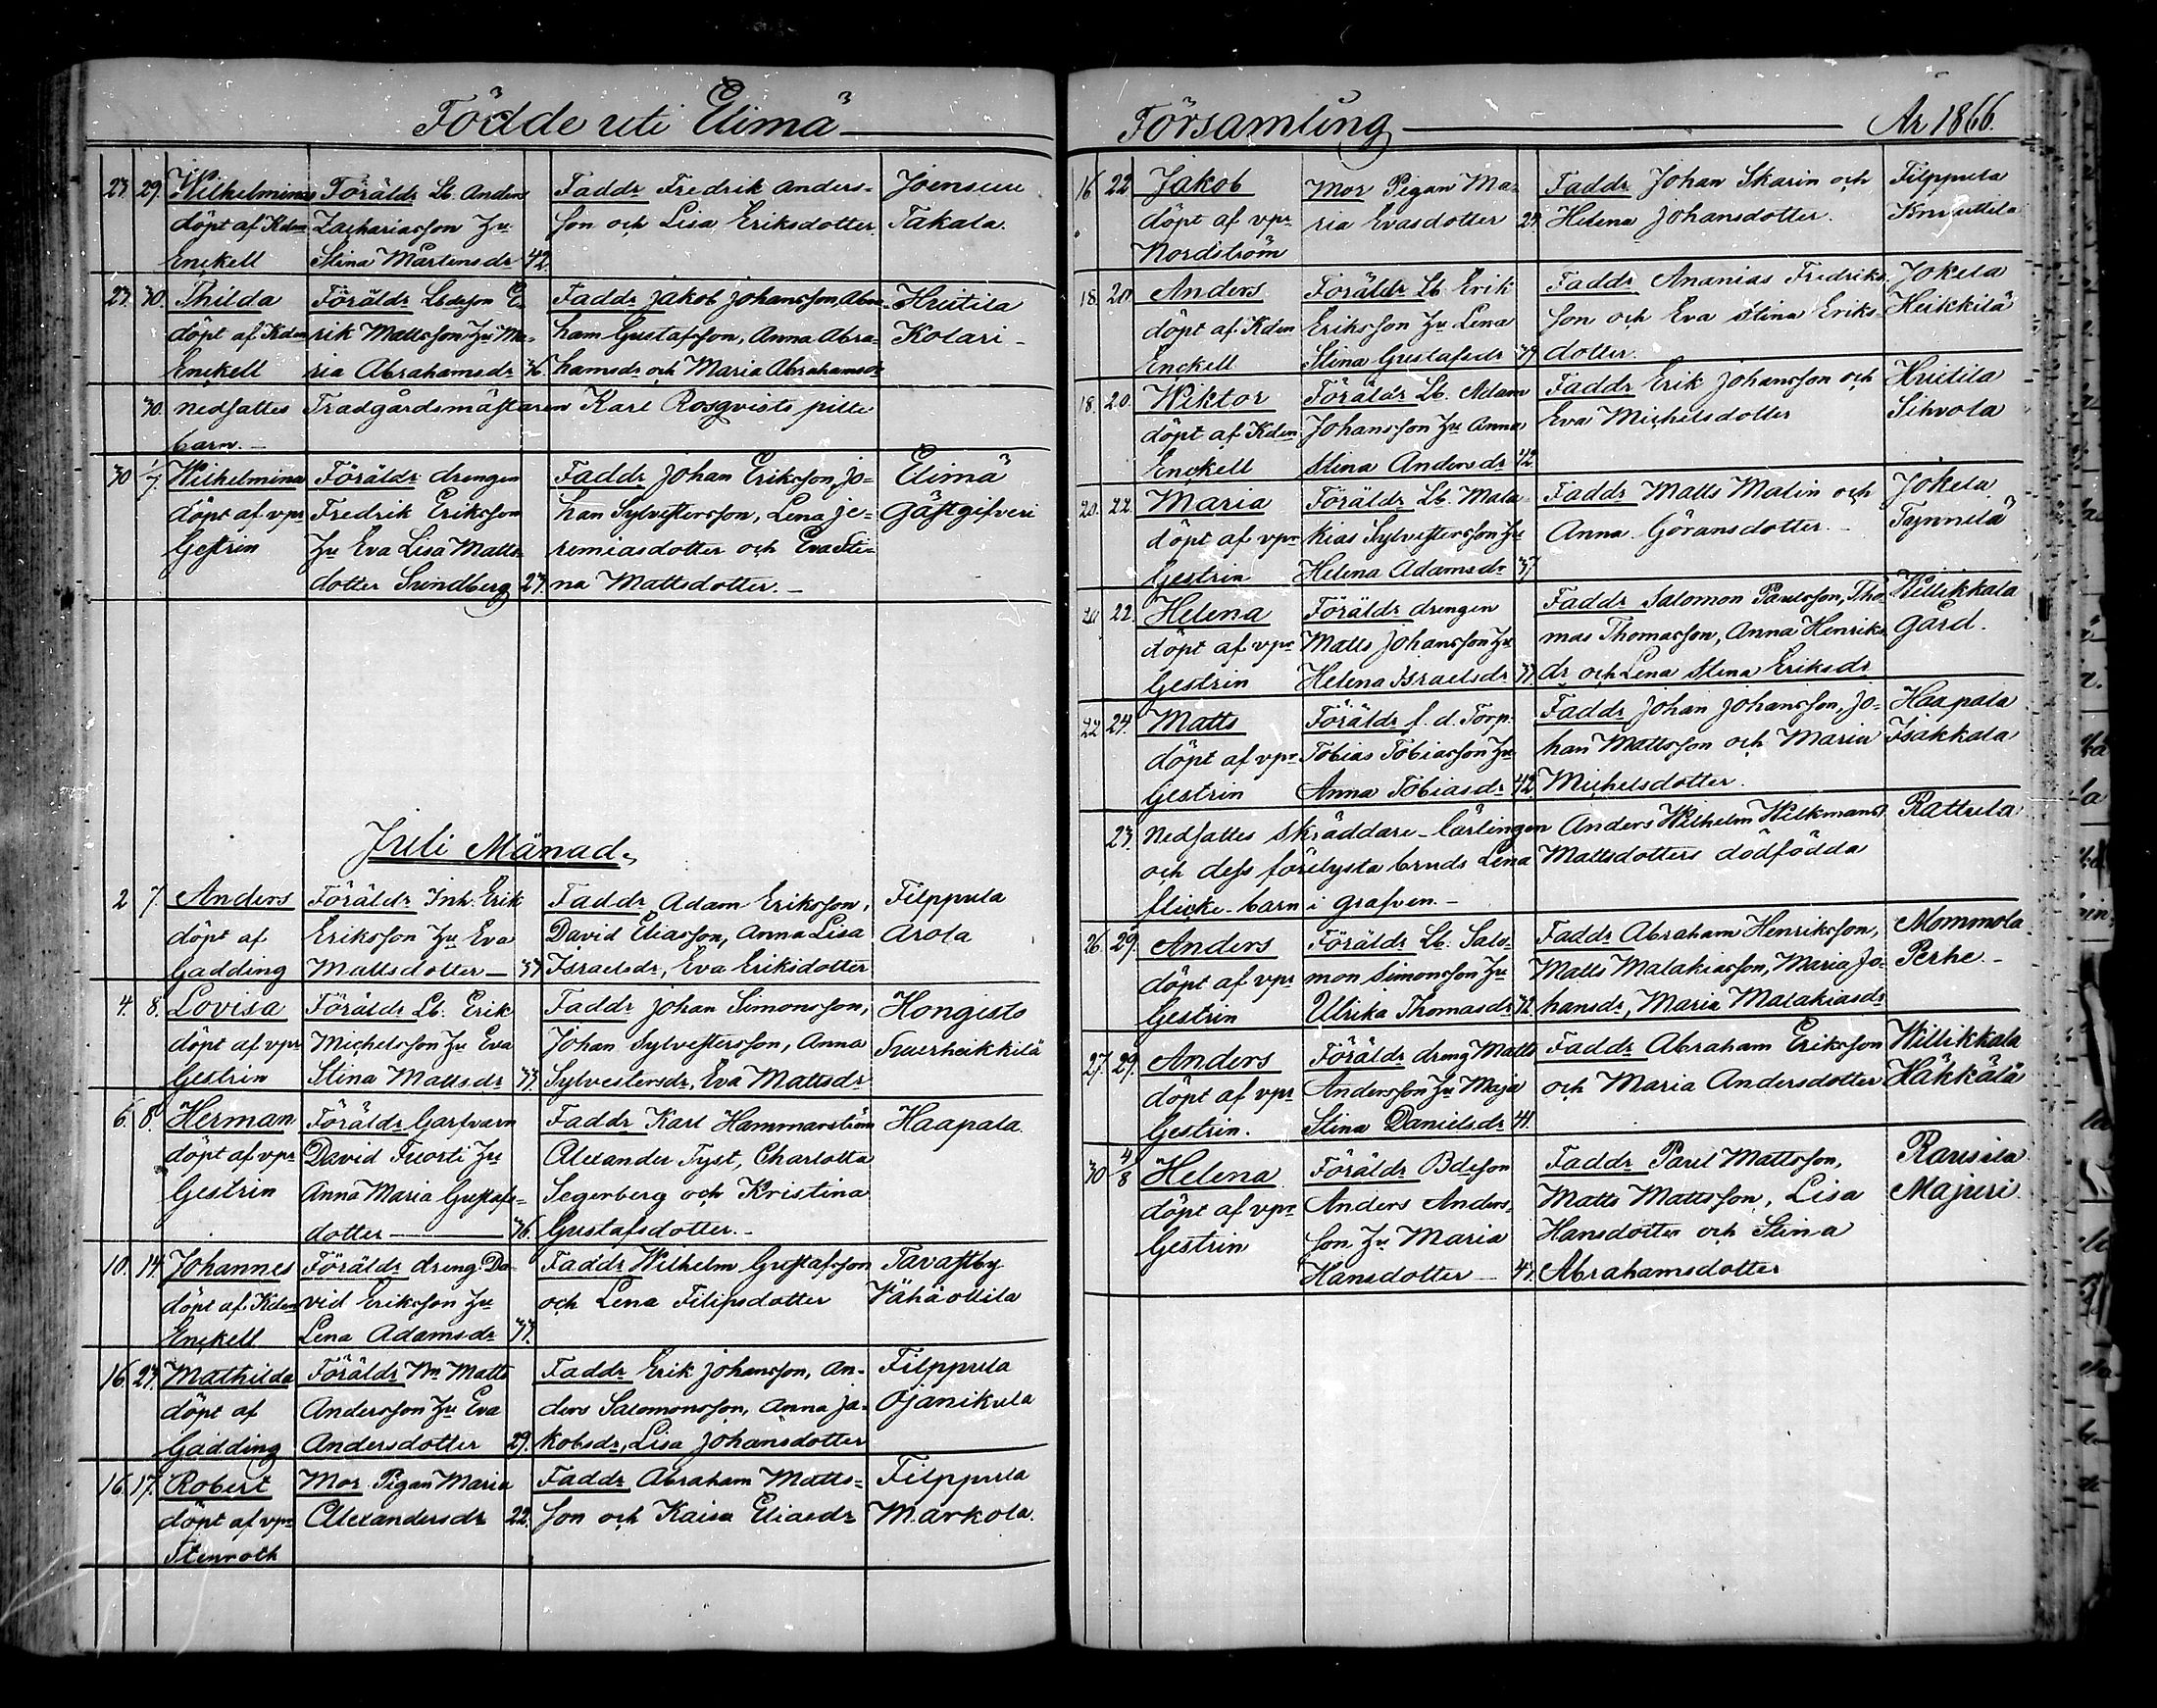 Födde uti Elimä
23. 29. Wilhelmina Föräldr Lb. Anders Faddr Fredrik Anders- Joensuu
döpt af Kdem Zachariasson Hu son och Lisa Eriksdotter. Takala.
Enckell Stina Mårtensdr 42.
23. 30. Thilda Föräldr Lbdeson E- Faddr Jakob Johansson, Abra- Hriitila
döpt af Kdem rik Mattsson Hu Ma- ham Gustafsson, Anna Abra- Kolari
Enckell ria Abrahamsdr 36. hamsdr och Maria Abrahamsdr
30. nedsattes Trädgårdsmästaren Karl Rosqvists pilte
barn.
30 1/7 Wilhelmina Föräldr drengen Faddr Johan Eriksson, Jo- Elimä
döpt af vpr Fredrik Eriksson han Sylvestersson, Lena Je- Gästgifveri
Gestrin Hu Eva Lisa Matts- remiasdotter och Eva Sti-
dotter Sundberg 23. na Mattsdotter.
Juli Månad.
2 7. Anders Föräldr Inh. Erik Faddr Adam Eriksson, Filppula
döpt af Eriksson Hu Eva David Eliasson, Anna Lisa Arola
Gadding Mattsdotter 33 Israelsdr, Eva Eriksdotter
4. 8. Lovisa Föräldr Lb. Erik Faddr Johan Simonsson, Hongisto
döpt af vpr Michelsson Hu Eva Johan Sylvestersson, Anna Suurheikkilä
Gestrin Stina Mattsdr 33. Sylvestersdr, Eva Mattsdr
6. 8. Herman Föräldr Garfvarn Faddr Karl Hammarström Haapala.
döpt af vpr David Fuorti Hu Alexander Tyst, Charlotta
Gestrin Anna Maria Gustafs- Segerberg och Kristina
dotter 36. Gustafsdotter.
10. 14. Johannes Föräldr dreng. Da- Faddr Wilhelm Gustafsson Tavastby
döpt af Kdem vid Eriksson Hu och Lena Filipsdotter Vähäollila
Enckell Lena Adamsdr 33.
16. 23. Mathilda Föräldr Mr Matts Faddr Erik Johansson, An- Filppula
döpt af Andersson Hu Eva ders Salomonsson, Anna Ja- Ojanikula
Gadding Andersdotter 29. kobsdr, Lisa Johansdotter
16. 17. Robert Mor Pigan Maria Faddr Abraham Matts- Filppula
döpt af vpr Alexandersdr 22. son och Kaisa Eliasdr Markola.
Stenroth
Församling År 1866.
16 22 Jakob Mor Pigan Ma- Faddr Johan Skarin och Filppula
döpt af vpr ria Evasdotter 24. Helena Johansdotter. Knuuttila
Nordström
18. 20. Anders Föräldr Lb. Erik Faddr Ananias Fredriks- Jokela
döpt af Kdem Eriksson Hu Lena son och Eva Stina Eriks- Heikkilä
Enckell Stina Gustafsdr 39. dotter.
18. 20. Wiktor Föräldr Lb. Adam Faddr Erik Johansson och Hriitila
döpt af Kdem Johansson Hu Anna Eva Michelsdotter Sihvola
Enckell Stina Andersdr 42.
20. 22. Maria Föräldr Lb. Mala- Faddr Matts Malin och Jokela
döpt af vpr kias Sylvestersson Hu Anna Göransdotter. Tynnilä
Gestrin Helena Adamsdr 37.
20 22. Helena Föräldr drengen Faddr Salomon Paulsson, Tho- Willikkala
döpt af vpr Matts Johansson Hu mas Thomasson, Anna Henriks- Gård.
Gestrin Helena Israelsdr 37. dr och Lena Stina Eriksdr
22 24. Matts Föräldr f.d. Torp. Faddr Johan Johansson, Jo- Haapala
döpt af vpr Tobias Tobiasson Hu han Mattsson och Maria Isakkala
Gestrin Anna Tobiasdr 42 Michelsdotter.
23. Nedsattes Skräddare-lärlingen Anders Wilhelm Wilkmans Rattula
och dess förelysta bruds Lena Mattsdotters dödfödda
flicke-barn i grafven.
26. 29. Anders Föräldr Lb. Salo- Faddr Abraham Henriksson, Mommola
döpt af vpr mon Simonsson Hu Matts Malakiasson, Maria Jo- Perhe.
Gestrin Ulrika Thomasdr 32. hansdr, Maria Malakiasdr
27. 29. Anders Föräldr dreng Matts Faddr Abraham Eriksson Willikkala
döpt af vpr Andersson Hu Maja och Maria Andersdotter Häkkälä
Gestrin. Stina Danielsdr 41.
30 4/8 Helena Föräldr Bdeson Faddr Paul Mattsson, Raussila
döpt af vpr Anders Anders- Matts Mattsson, Lisa Majuri.
Gestrin son Hu Maria Hansdotter och Stina
Hansdotter 43. Abrahamsdotter